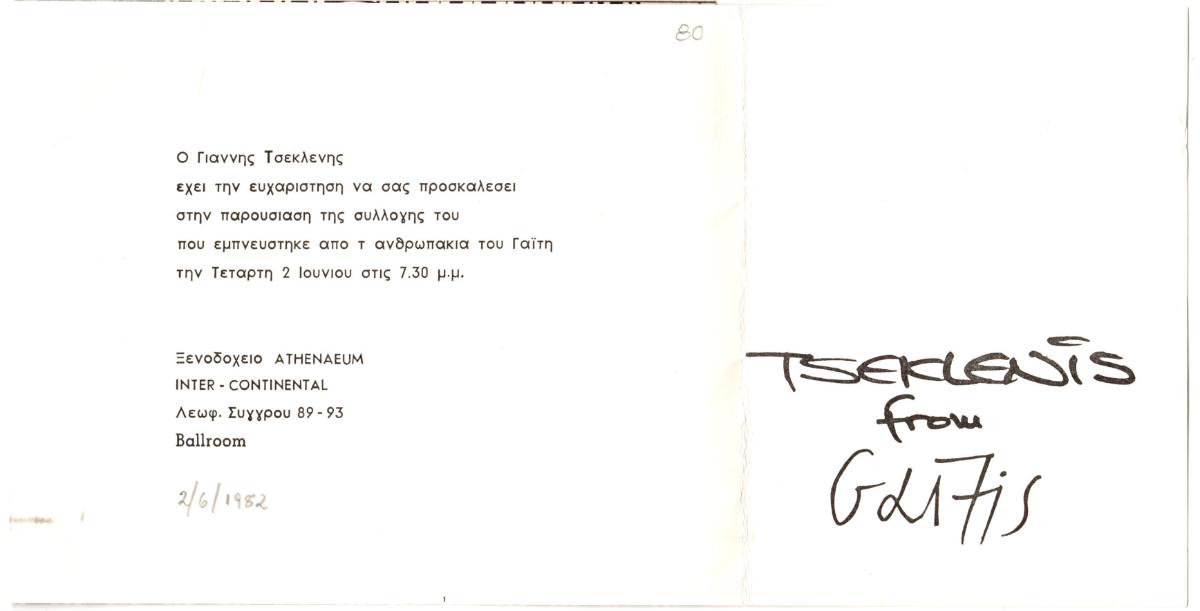 80
Ο Γιαννης Τσεκλενης
εχει την ευχαριστηση να σας προσκαλεσει
στην παρουσιαση της συλλογης του
που εμπνευστηκε απο τ ανθρωπακια του Γαϊτη
την Τεταρτη 2 Ιουνιου στις 7.30 μ.μ.
Ξενοδοχειο ATHENAEUM
INTER - CONTINENTAL
Λεωφ. Συγγρου 89 - 93
Ballroom
2/6/1982
TSEKLENIS
from
GαITis